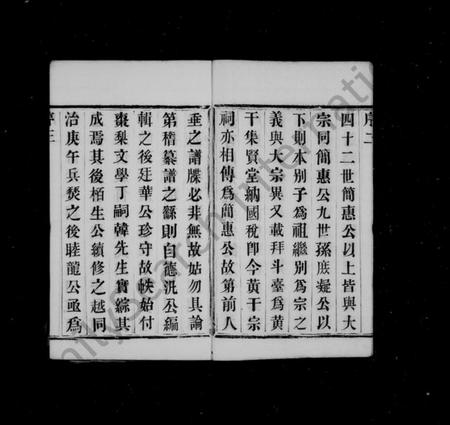 序二
四十二世簡惠公以上皆與大
宗同簡惠公九世孫底凝公以
下則本別子為祖繼別為宗之
義與大宗異又載拜斗臺為黃
干集賢堂納國稅即今黃干宗
祠亦相傳為簡惠公故第前人
垂之譜牒必非無故姑勿具論
第稽纂譜之繇則自德洸公編
輯之後廷華公珍守故帙始付
棗棃文學丁嗣韓先生實綜其
成焉其後栢生公續修之越同
治庚午兵燹之後睦龍公亟為
序三